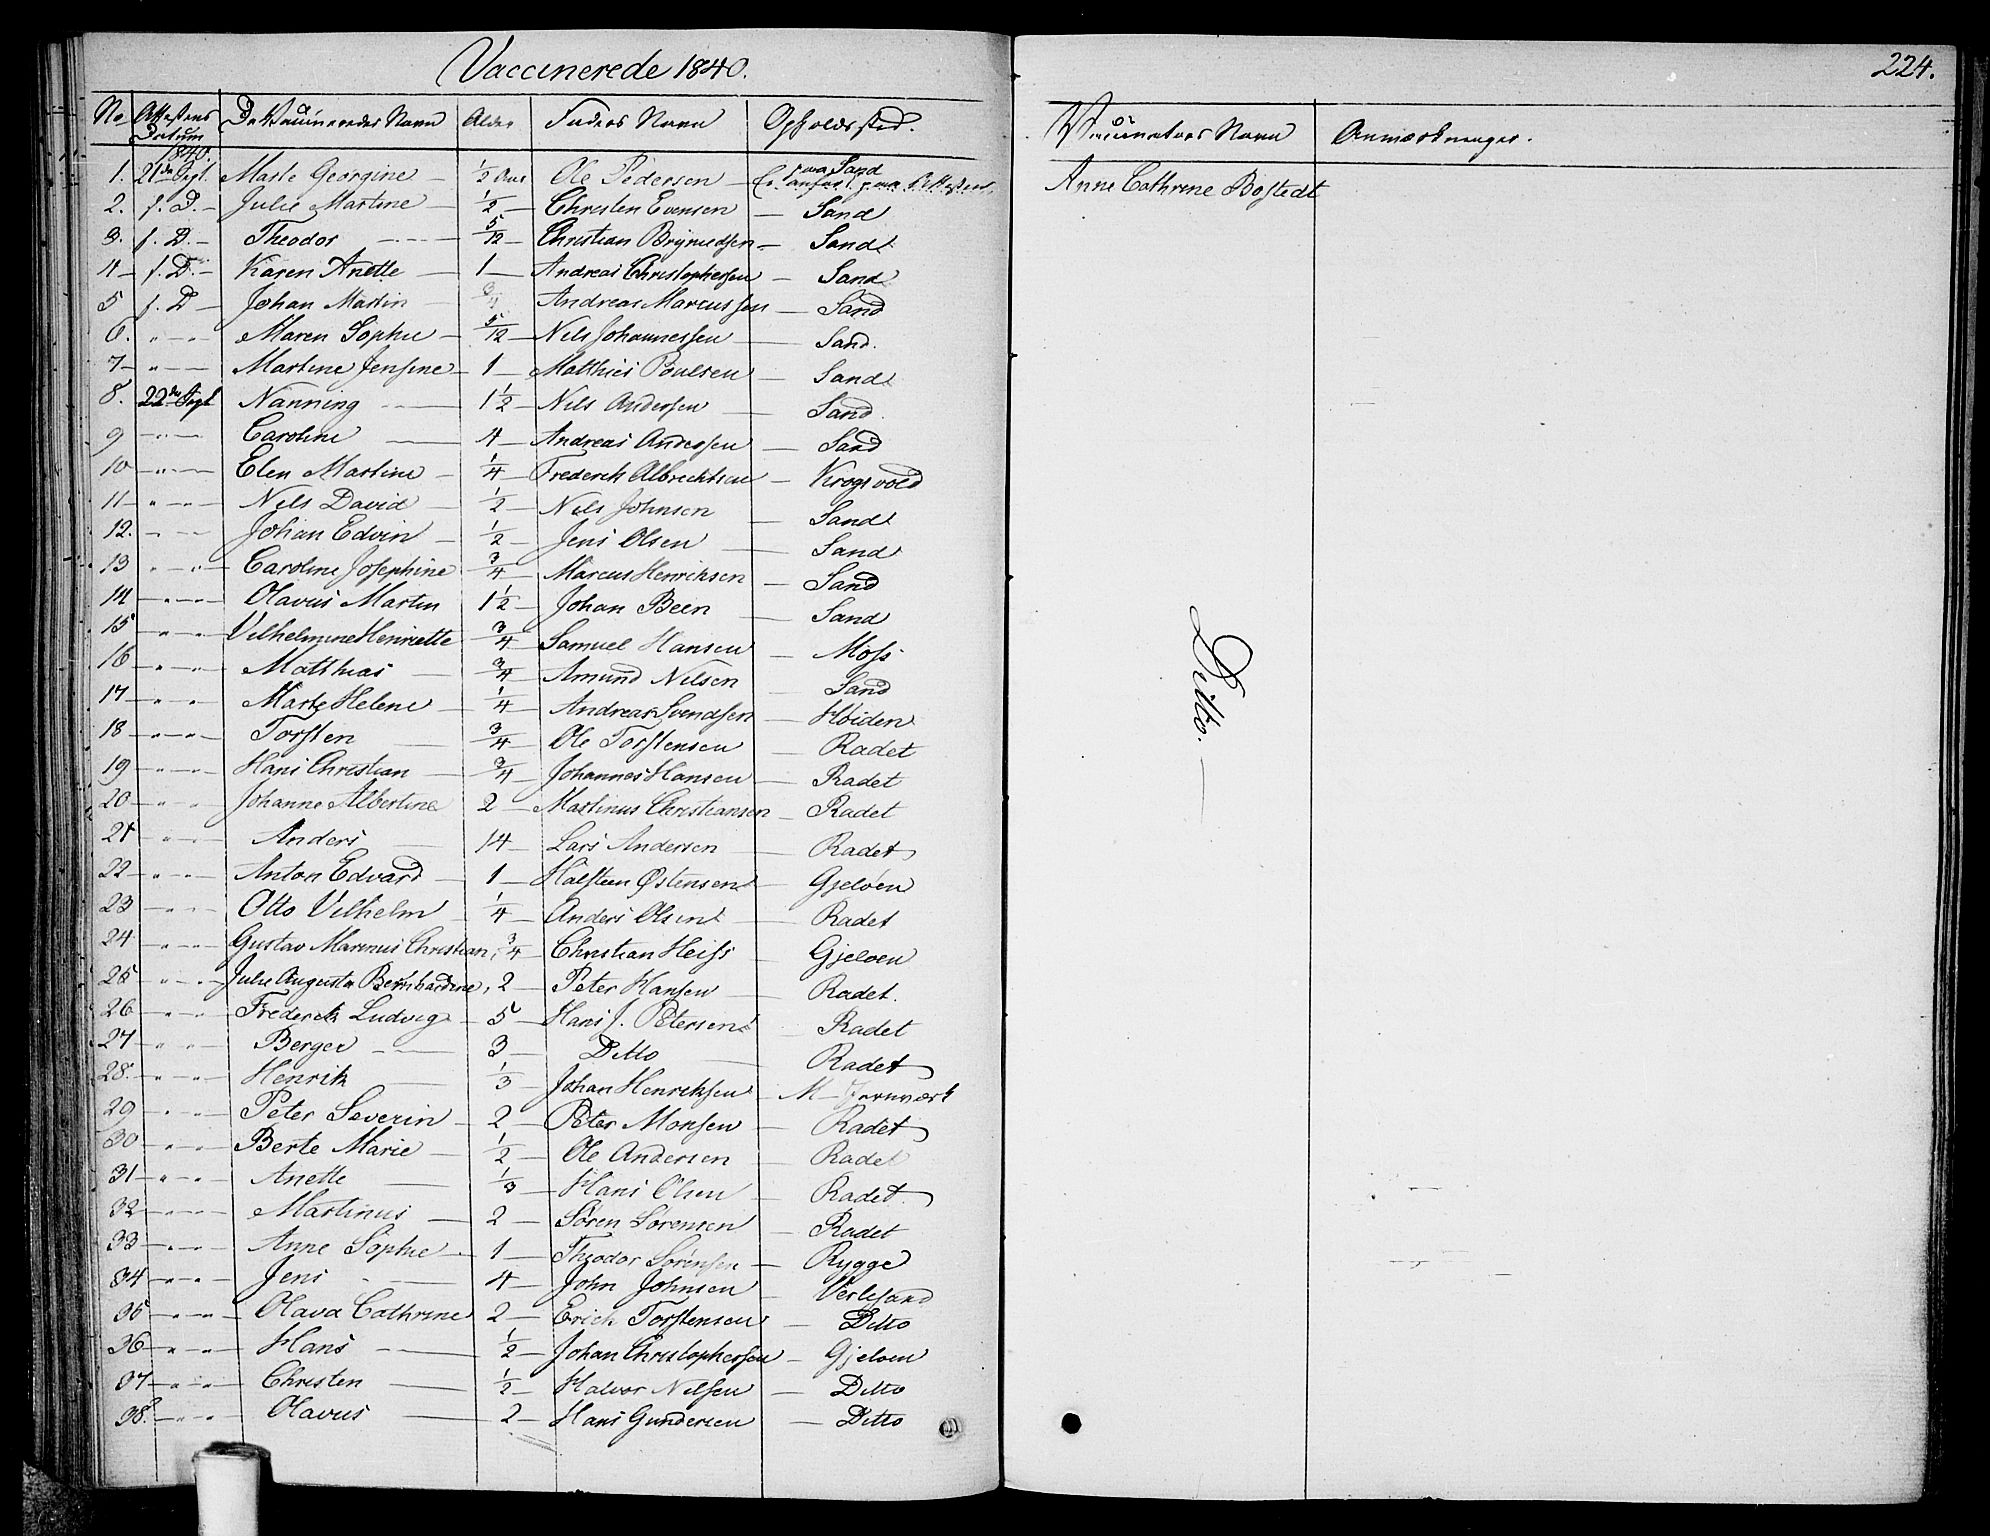 Vaccinerede 1840.
224.
No Attestens Datum De Vaccineredes Navn Alder Faders Navn Opholdssted. Vaccinators Navn Anmærkninger.
1840.
1. 21de Sept. Marte Georgine — 1/2 Aar Ole Pedersen — paa Sand Anne Cathrine Bostedt
2. f. D. — Julie Martine — 1/2 — Christen Evensen — Sand
3. f. D. — Theodor — 5/12 — Christian Brynildsen — Sand
4 — f. D. — Karen Anette — 1 — Andreas Christophersen — Sand
5 f. D — Johan Martin — 3/4 Andreas Marcussen — Sand
6. " — " — Maren Sophie — 5/12 — Nils Johannessen — Sand.
7 — " — Martine Jensine — 1 — Matthies Poulsen — Sand
8. 22de Sept Nanning — 1 1/2 — Nils Andersen — Sand
9 — " — Caroline — 4 — Andreas Andersen — Sand
10 — " — " — Elen Martine — 1/4 — Frederik Albrechtsen — Krogsvold
11 — " — " — Nils David — 1/2 — Nils Johnsen — Sand
12. — " — Johan Edvin — 1/2 — Jens Olsen — Sand
13 " — " — Caroline Josephine 3/4 — Marcus Henriksen — Sand
14 — " — " — Olavus Martin 1 1/2 — Johan Been — Sand
15 — " — " Vilhelmine Henriette 3/4 — Samuel Hansen — Moss
16 — " — " Matthias — 3/4 — Amund Nilsen — Sand
17 — " — " — Marte Helene — 1/4 — Andreas Svendsen — Høiden
18 — " — " — Torsten — 3/4 — Ole Torstensen — Radet
19 — " — " — Hans Christian — 3/4 — Johannes Hansen — Radet
20 — " — " Johanne Albertine 2 — Martinus Christiansen — Radet
21 — " — " — Anders — 14 — Lars Andersen — Radet
22 — " — " — Anton Edvard — 1 — Halsteen Østensen — Gjeløen
23 — " — " — Otto Vilhelm — 1/4 — Anders Olsen — Radet
24 — " — " — Gustav Marinus Christian, 3/4 — Christian Heiss — Gjeløen
25 — " — " — Julie Augusta Bernhardine, 2 — Peter Hansen — Radet.
26 — " — " — Frederik Ludvig — 5 — Hans J. Petersen — Radet
27 — " — " — Berger — 3 — Ditto — Radet
28. — " — " — Henrik — 1/3 — Johan Henriksen — M — Jernværk
29 — " — " — Peter Severin — 2 — Peter Monsen — Radet
30 — " — " — Berte Marie — 1/2 — Ole Andersen — Radet
31 — " — " — Anette — 1/3 — Hans Olsen — Radet
32 — " — " — Martinus — 2 — Søren Sørensen — Radet
33 — " — " — Anne Sophie — 1 — Theodor Sørensen — Rygge
34 — " — " — Jens — 4 — John Johnsen — Verlesand
35 — " — " — Olava Cathrine 2 — Erich Torstensen — Ditto
36 — " — " — Hans — 1/2 — Johan Christophersen — Gjeløen
37 — " — " — Christen — 1/2 — Halvor Nilsen — Ditto
38. — " — " — Olavus — 2 — Hans Gundersen — Ditto
Ditto. —